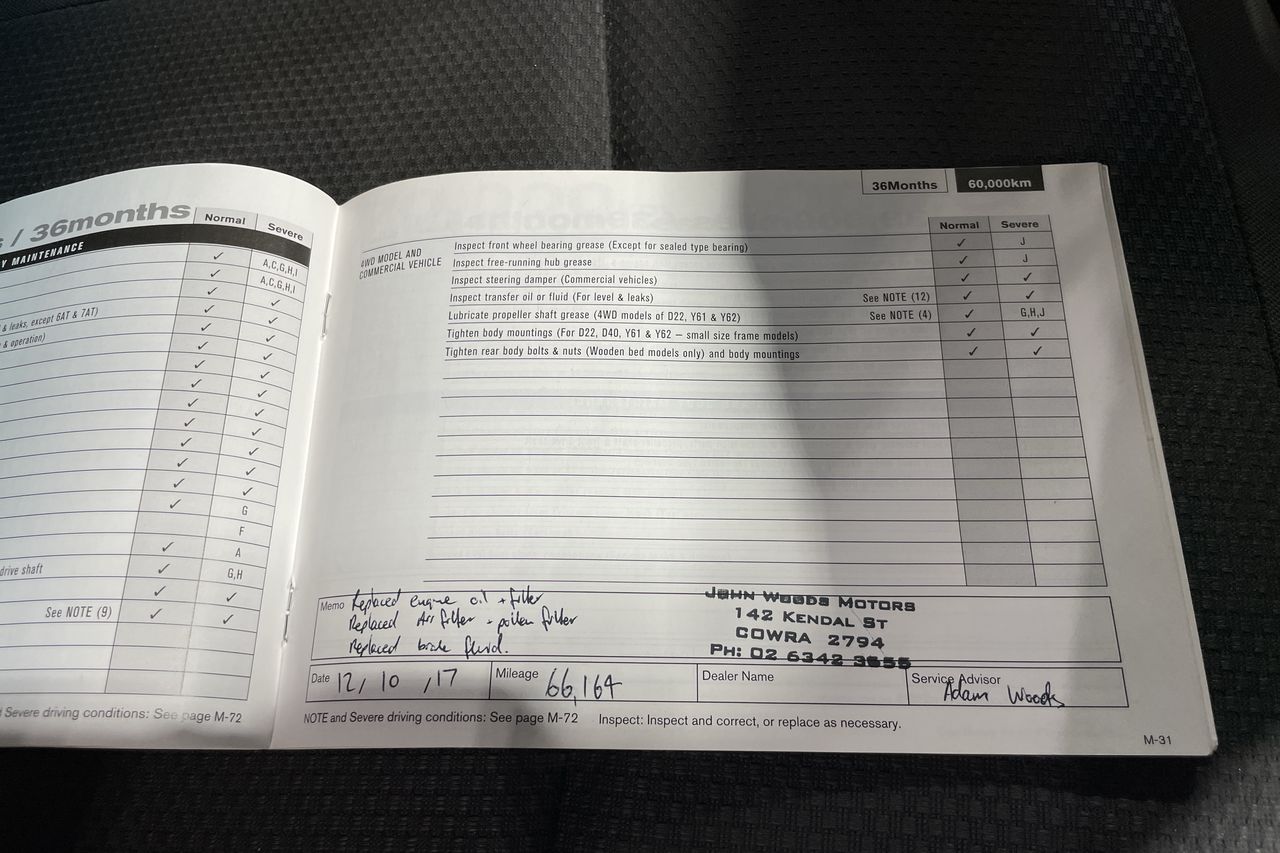 / 36months
Normal
Severe
Y MAINTENANCE
✓ A,C,G,H,I
✓ A,C,G,H,I
✓ ✓
& leaks, except 6AT & 7AT) ✓ ✓
& operation) ✓ ✓
✓ ✓
✓ ✓
✓ ✓
✓ ✓
✓ ✓
✓ ✓
✓ ✓
✓ ✓
✓ G
F
✓ A
drive shaft ✓ G,H
✓ ✓
See NOTE (9) ✓ ✓
Severe driving conditions: See page M-72
36Months 60,000km
Normal Severe
4WD MODEL AND
COMMERCIAL VEHICLE
Inspect front wheel bearing grease (Except for sealed type bearing) ✓ J
Inspect free-running hub grease ✓ J
Inspect steering damper (Commercial vehicles) ✓ ✓
Inspect transfer oil or fluid (For level & leaks) See NOTE (12) ✓ ✓
Lubricate propeller shaft grease (4WD models of D22, Y61 & Y62) See NOTE (4) ✓ G,H,J
Tighten body mountings (For D22, D40, Y61 & Y62 – small size frame models) ✓ ✓
Tighten rear body bolts & nuts (Wooden bed models only) and body mountings ✓ ✓
Memo Replaced engine oil + filter
Replaced Air filter + pollen filter
Replaced brake fluid.
JOHN WOODS MOTORS
142 KENDAL ST
COWRA 2794
PH: 02 6342 3555
Date 12/10/17
Mileage 66,164
Dealer Name
Service Advisor
Adam Woods
NOTE and Severe driving conditions: See page M-72 Inspect: Inspect and correct, or replace as necessary.
M-31